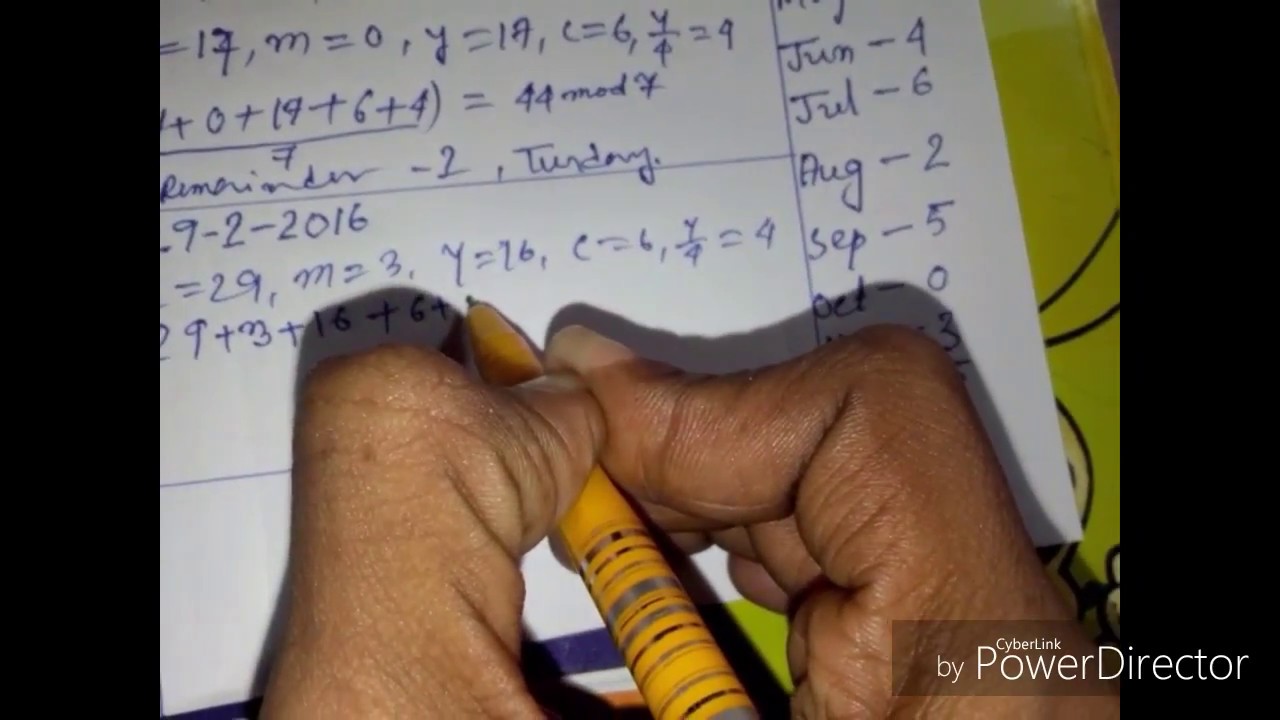 =17, m=0, y=17, c=6, y/4=4
+0+17+6+4) = 44 mod 7
7
Remainder -2, Tuesday.
9-2-2016
=29, m=3, y=16, c=6, y/4=4
29+3+16+6+
Jun-4
Jul-6
Aug-2
Sep-5
Oct-0
3
CyberLink
by PowerDirector